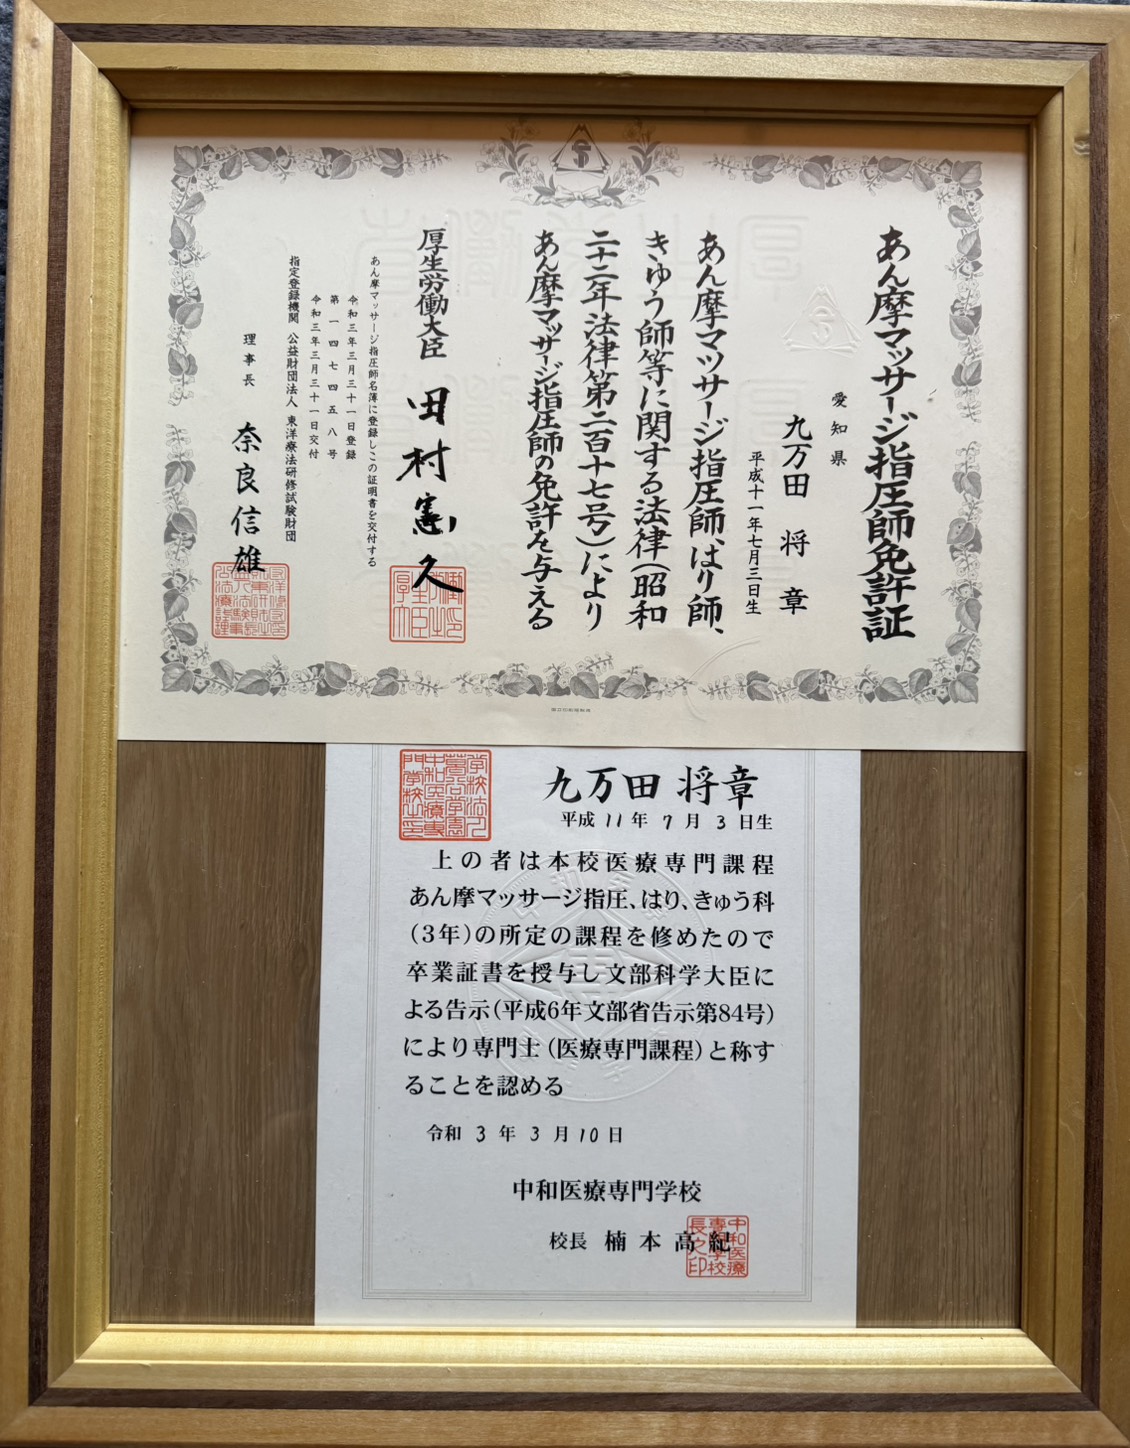 あん摩マッサージ指圧師免許証
愛知県
九万田 将章
平成十一年七月三日生
あん摩マッサージ指圧師、はり師、
きゆう師等に関する法律(昭和
二十二年法律第二百十七号)により
あん摩マッサージ指圧師の免許を与える
厚生労働大臣 田村憲久
あん摩マッサージ指圧師名簿に登録しこの証明書を交付する
令和三年三月三十一日登録
第一四七四五八号
令和三年三月三十一日交付
指定登録機関 公益財団法人 東洋療法研修試験財団
理事長 奈良信雄
九万田 将章
平成11年7月3日生
上の者は本校医療専門課程
あん摩マッサージ指圧、はり、きゅう科
(3年)の所定の課程を修めたので
卒業証書を授与し文部科学大臣に
よる告示(平成6年文部省告示第84号)
により専門士(医療専門課程)と称す
ることを認める
令和3年3月10日
中和医療専門学校
校長 楠本高紀
中和医療
専門学校
長之印